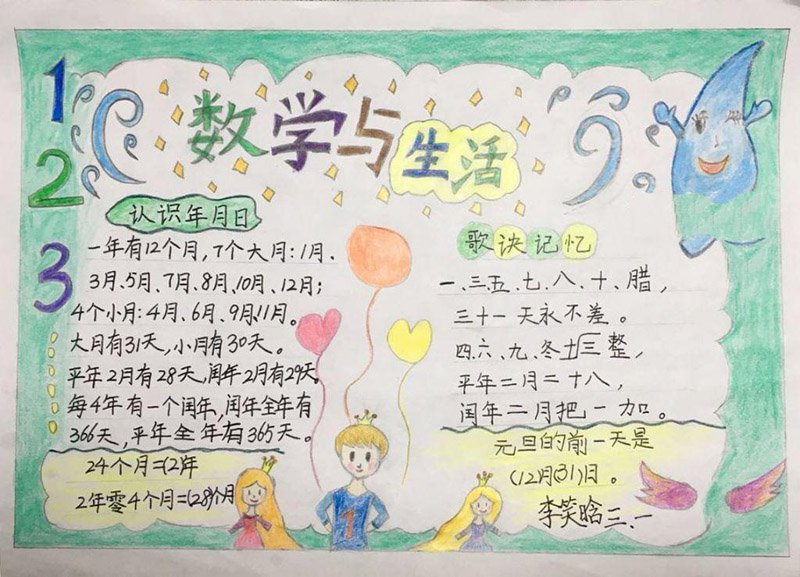 1
2
3
数学与生活
认识年月日
一年有12个月,7个大月:1月、
3月、5月、7月、8月、10月、12月;
4个小月:4月、6月、9月、11月。
大月有31天,小月有30天。
平年2月有28天,闰年2月有29天。
每4年有一个闰年,闰年全年有
366天,平年全年有365天。
24个月=(2)年
2年零4个月=(28)个月
1
歌诀记忆
一、三、五、七、八、十、腊,
三十一天永不差。
四、六、九、冬三十整,
平年二月二十八,
闰年二月把一加。
元旦的前一天是
(12)月(31)日。
李笑晗 三、一